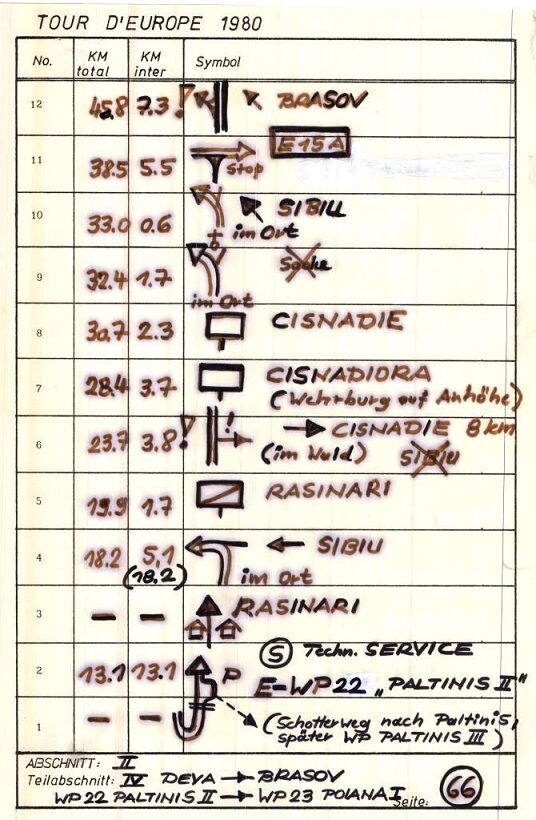 TOUR D'EUROPE 1980
No. KM total KM inter Symbol
12 45,8 7.3 ! BRASOV
E15A
11 38.5 5.5 Stop
10 33.0 0.6 SIBIU
im Ort
9 32.4 1.7
im Ort
8 30,7 2.3 CISNADIE
7 28.4 3.7 CISNADIORA
(Wehrburg auf Anhöhe)
6 23.7 3.8 ! ! CISNADIE 8 km
(im Wald) SIBIU
5 19.9 1.7 RASINARI
4 18.2 5,1 SIBIU
(18.2) im Ort
3 – – RASINARI
S Techn. SERVICE
2 13.1 13.1 P E-WP22 „PALTINIS II"
1 – – (Schotterweg nach Paltinis,
später WP PALTINIS III)
ABSCHNITT: II
Teilabschnitt: IV DEVA → BRASOV
WP 22 PALTINIS II → WP 23 POIANA I Seite: 66